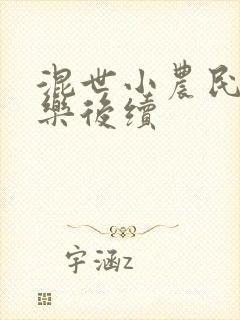 混世小農民
樂後續
宇涵z